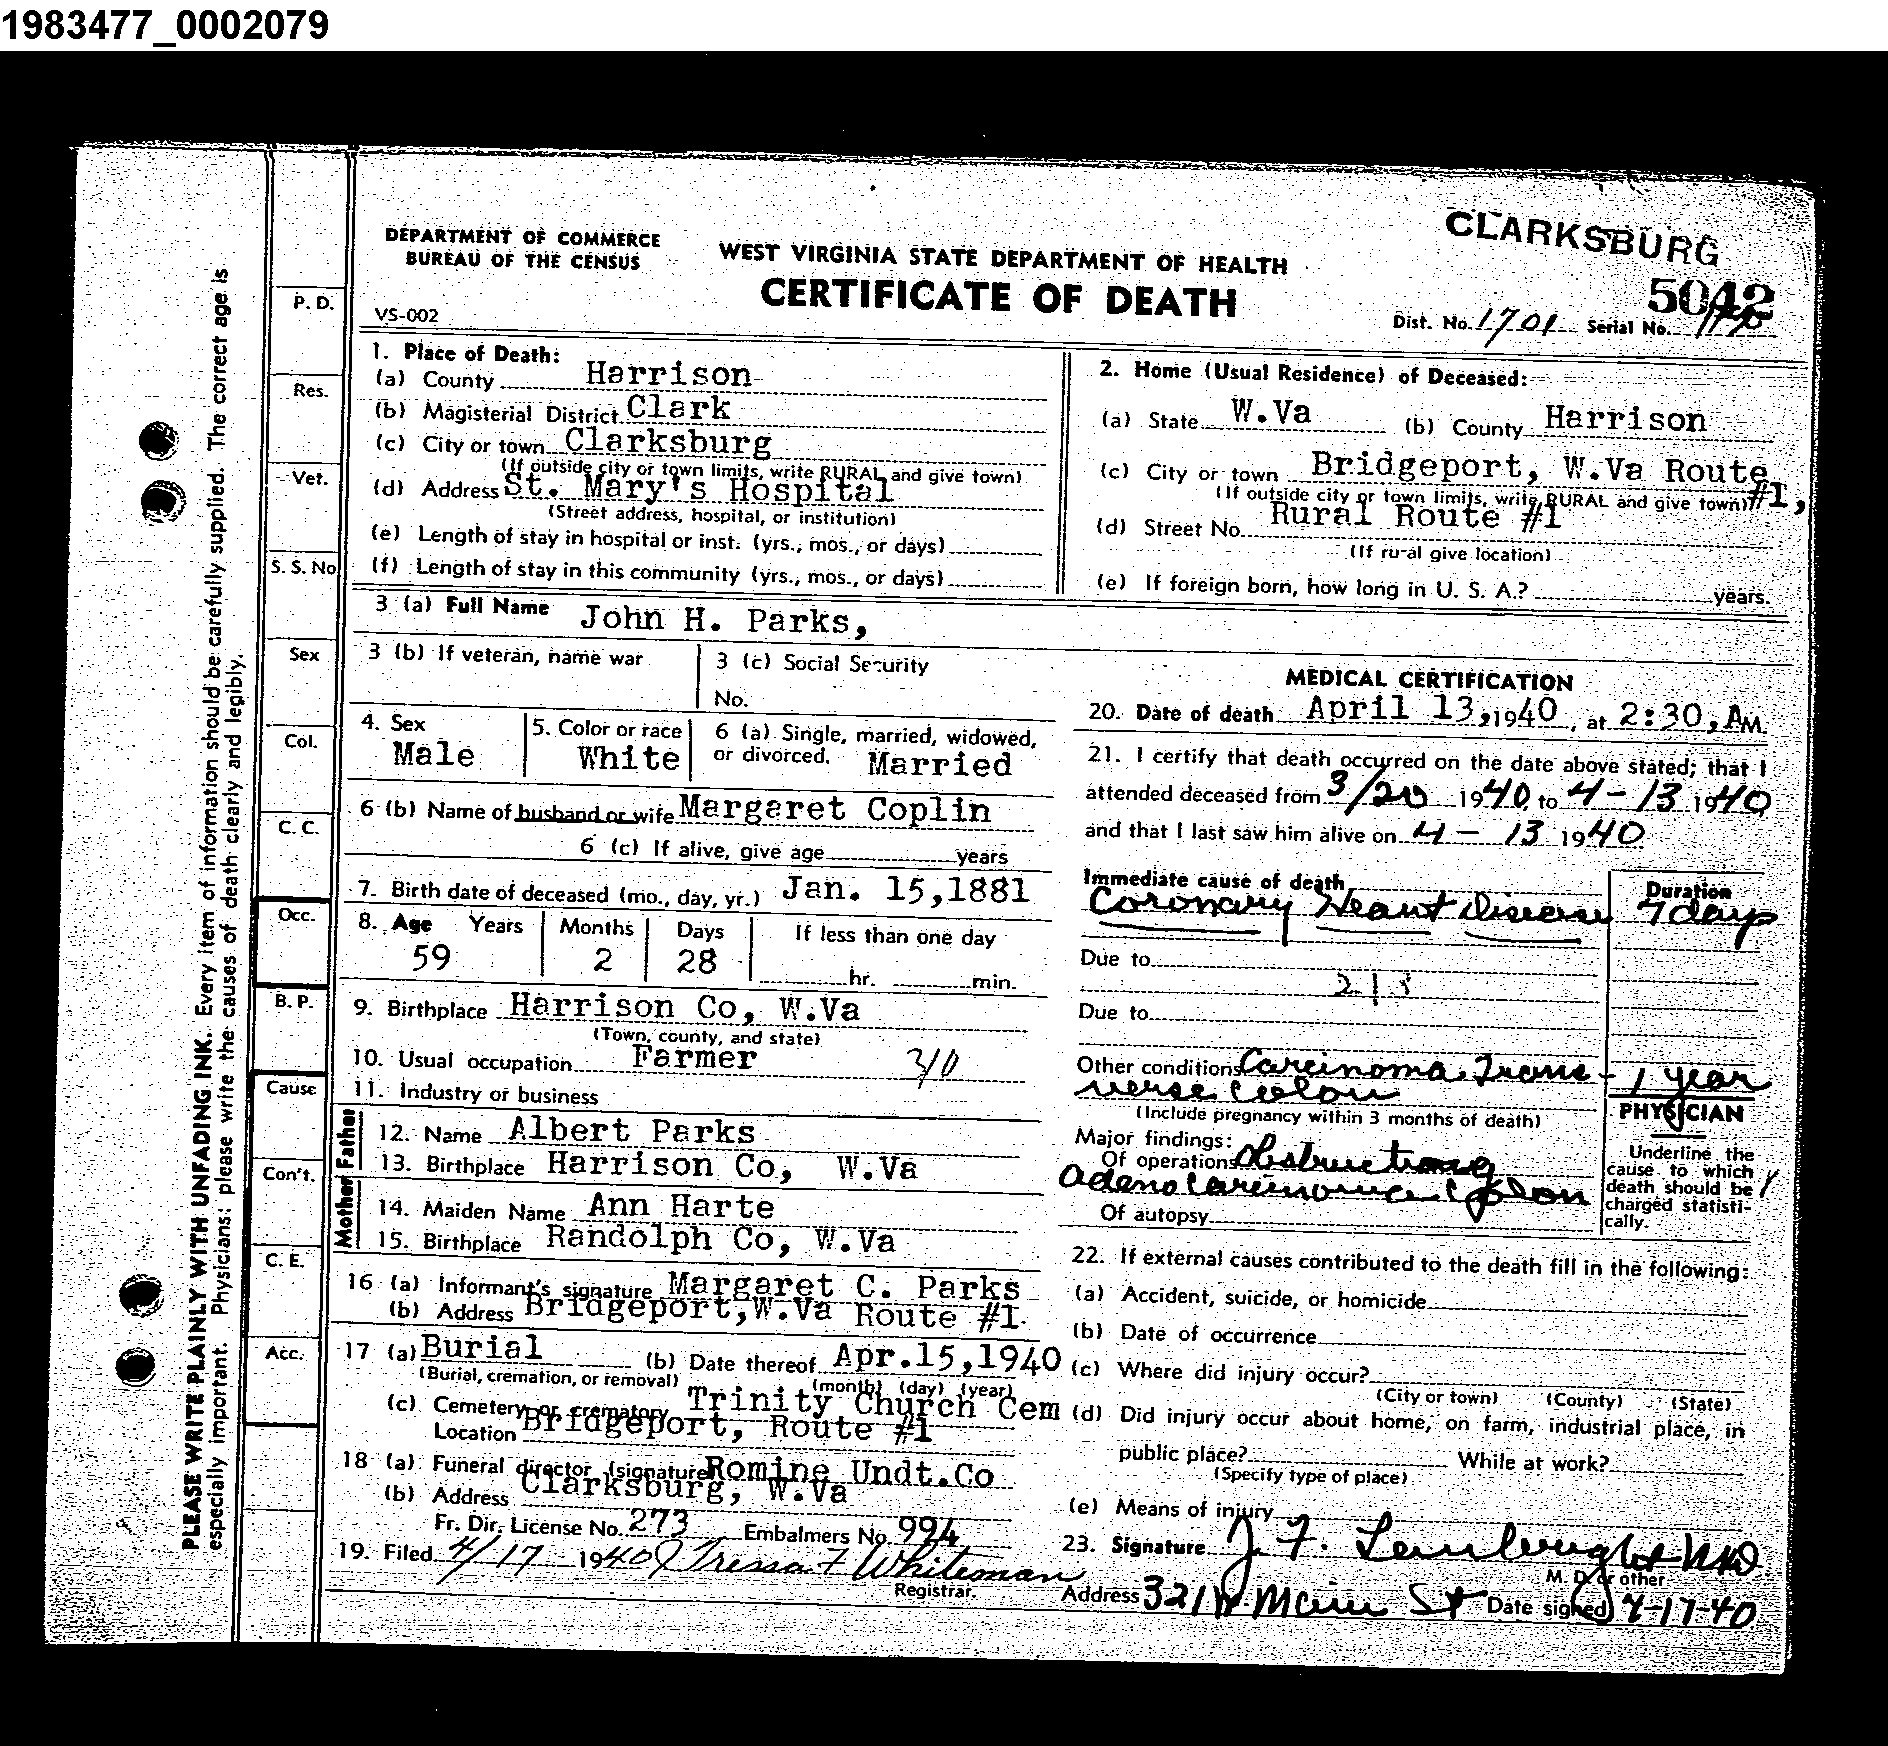 1983477_0002079
PLEASE WRITE PLAINLY WITH UNFADING INK. Every item of information should be carefully supplied. The correct age is
especially important. Physicians: please write the causes of death clearly and legibly.
P. D.
Res.
Vet.
S. S. No
Sex
Col.
C. C.
Occ.
B. P.
Cause
Con't.
C. E.
Acc.
DEPARTMENT OF COMMERCE
BUREAU OF THE CENSUS
VS-002
WEST VIRGINIA STATE DEPARTMENT OF HEALTH
CERTIFICATE OF DEATH
CLARKSBURG
5042
Dist. No. 1701 Serial No.
1. Place of Death:
(a) County Harrison
(b) Magisterial District Clark
(c) City or town Clarksburg
(If outside city or town limits, write RURAL and give town)
(d) Address St. Mary's Hospital
(Street address, hospital, or institution)
(e) Length of stay in hospital or inst. (yrs., mos., or days)
(f) Length of stay in this community (yrs., mos., or days)
2. Home (Usual Residence) of Deceased:
(a) State W.Va (b) County Harrison
(c) City or town Bridgeport, W.Va Route #1,
(If outside city or town limits, write RURAL and give town)
(d) Street No. Rural Route #1
(If ru-al give location)
(e) If foreign born, how long in U. S. A.? years.
3 (a) Full Name John H. Parks,
3 (b) If veteran, name war
3 (c) Social Security
No.
4. Sex
Male
5. Color or race
White
6 (a) Single, married, widowed,
or divorced. Married
6 (b) Name of husband or wife Margaret Coplin
6 (c) If alive, give age years
7. Birth date of deceased (mo., day, yr.) Jan. 15,1881
8. Age Years Months Days If less than one day
59 2 28 hr. min.
9. Birthplace Harrison Co, W.Va
(Town, county, and state)
10. Usual occupation Farmer
11. Industry or business
Father
12. Name Albert Parks
13. Birthplace Harrison Co, W.Va
Mother
14. Maiden Name Ann Harte
15. Birthplace Randolph Co, W.Va
16 (a) Informant's signature Margaret C. Parks
(b) Address Bridgeport,W.Va Route #1
17 (a) Burial (b) Date thereof Apr.15,1940
(Burial, cremation, or removal) (month) (day) (year)
(c) Cemetery or crematory Trinity Church Cem
Location Bridgeport, Route #1
18 (a) Funeral director (signature Romine Undt.Co
(b) Address Clarksburg, W.Va
Fr. Dir. License No. 273 Embalmers No. 994
19. Filed 4/17 1940 Tressa F Whiteman
Registrar.
MEDICAL CERTIFICATION
20. Date of death April 13, 1940, at 2:30, A M.
21. I certify that death occurred on the date above stated; that I
attended deceased from 3/20 1940 to 4-13 1940
and that I last saw him alive on 4-13 1940
Immediate cause of death Duration
Coronary Heart Disease 7 days
Due to
Due to
Other conditions Carcinoma Trans- 1 year
verse Colon
(Include pregnancy within 3 months of death)
Major findings:
Of operations Obstructing
Adenocarcinoma Colon
Of autopsy
PHYSICIAN
Underline the
cause to which
death should be
charged statisti-
cally.
22. If external causes contributed to the death fill in the following:
(a) Accident, suicide, or homicide
(b) Date of occurrence
(c) Where did injury occur?
(City or town) (County) (State)
(d) Did injury occur about home, on farm, industrial place, in
public place? While at work?
(Specify type of place)
(e) Means of injury
23. Signature J. F. MD
M. D. or other
Address 321 W Main St Date signed 4-17-40